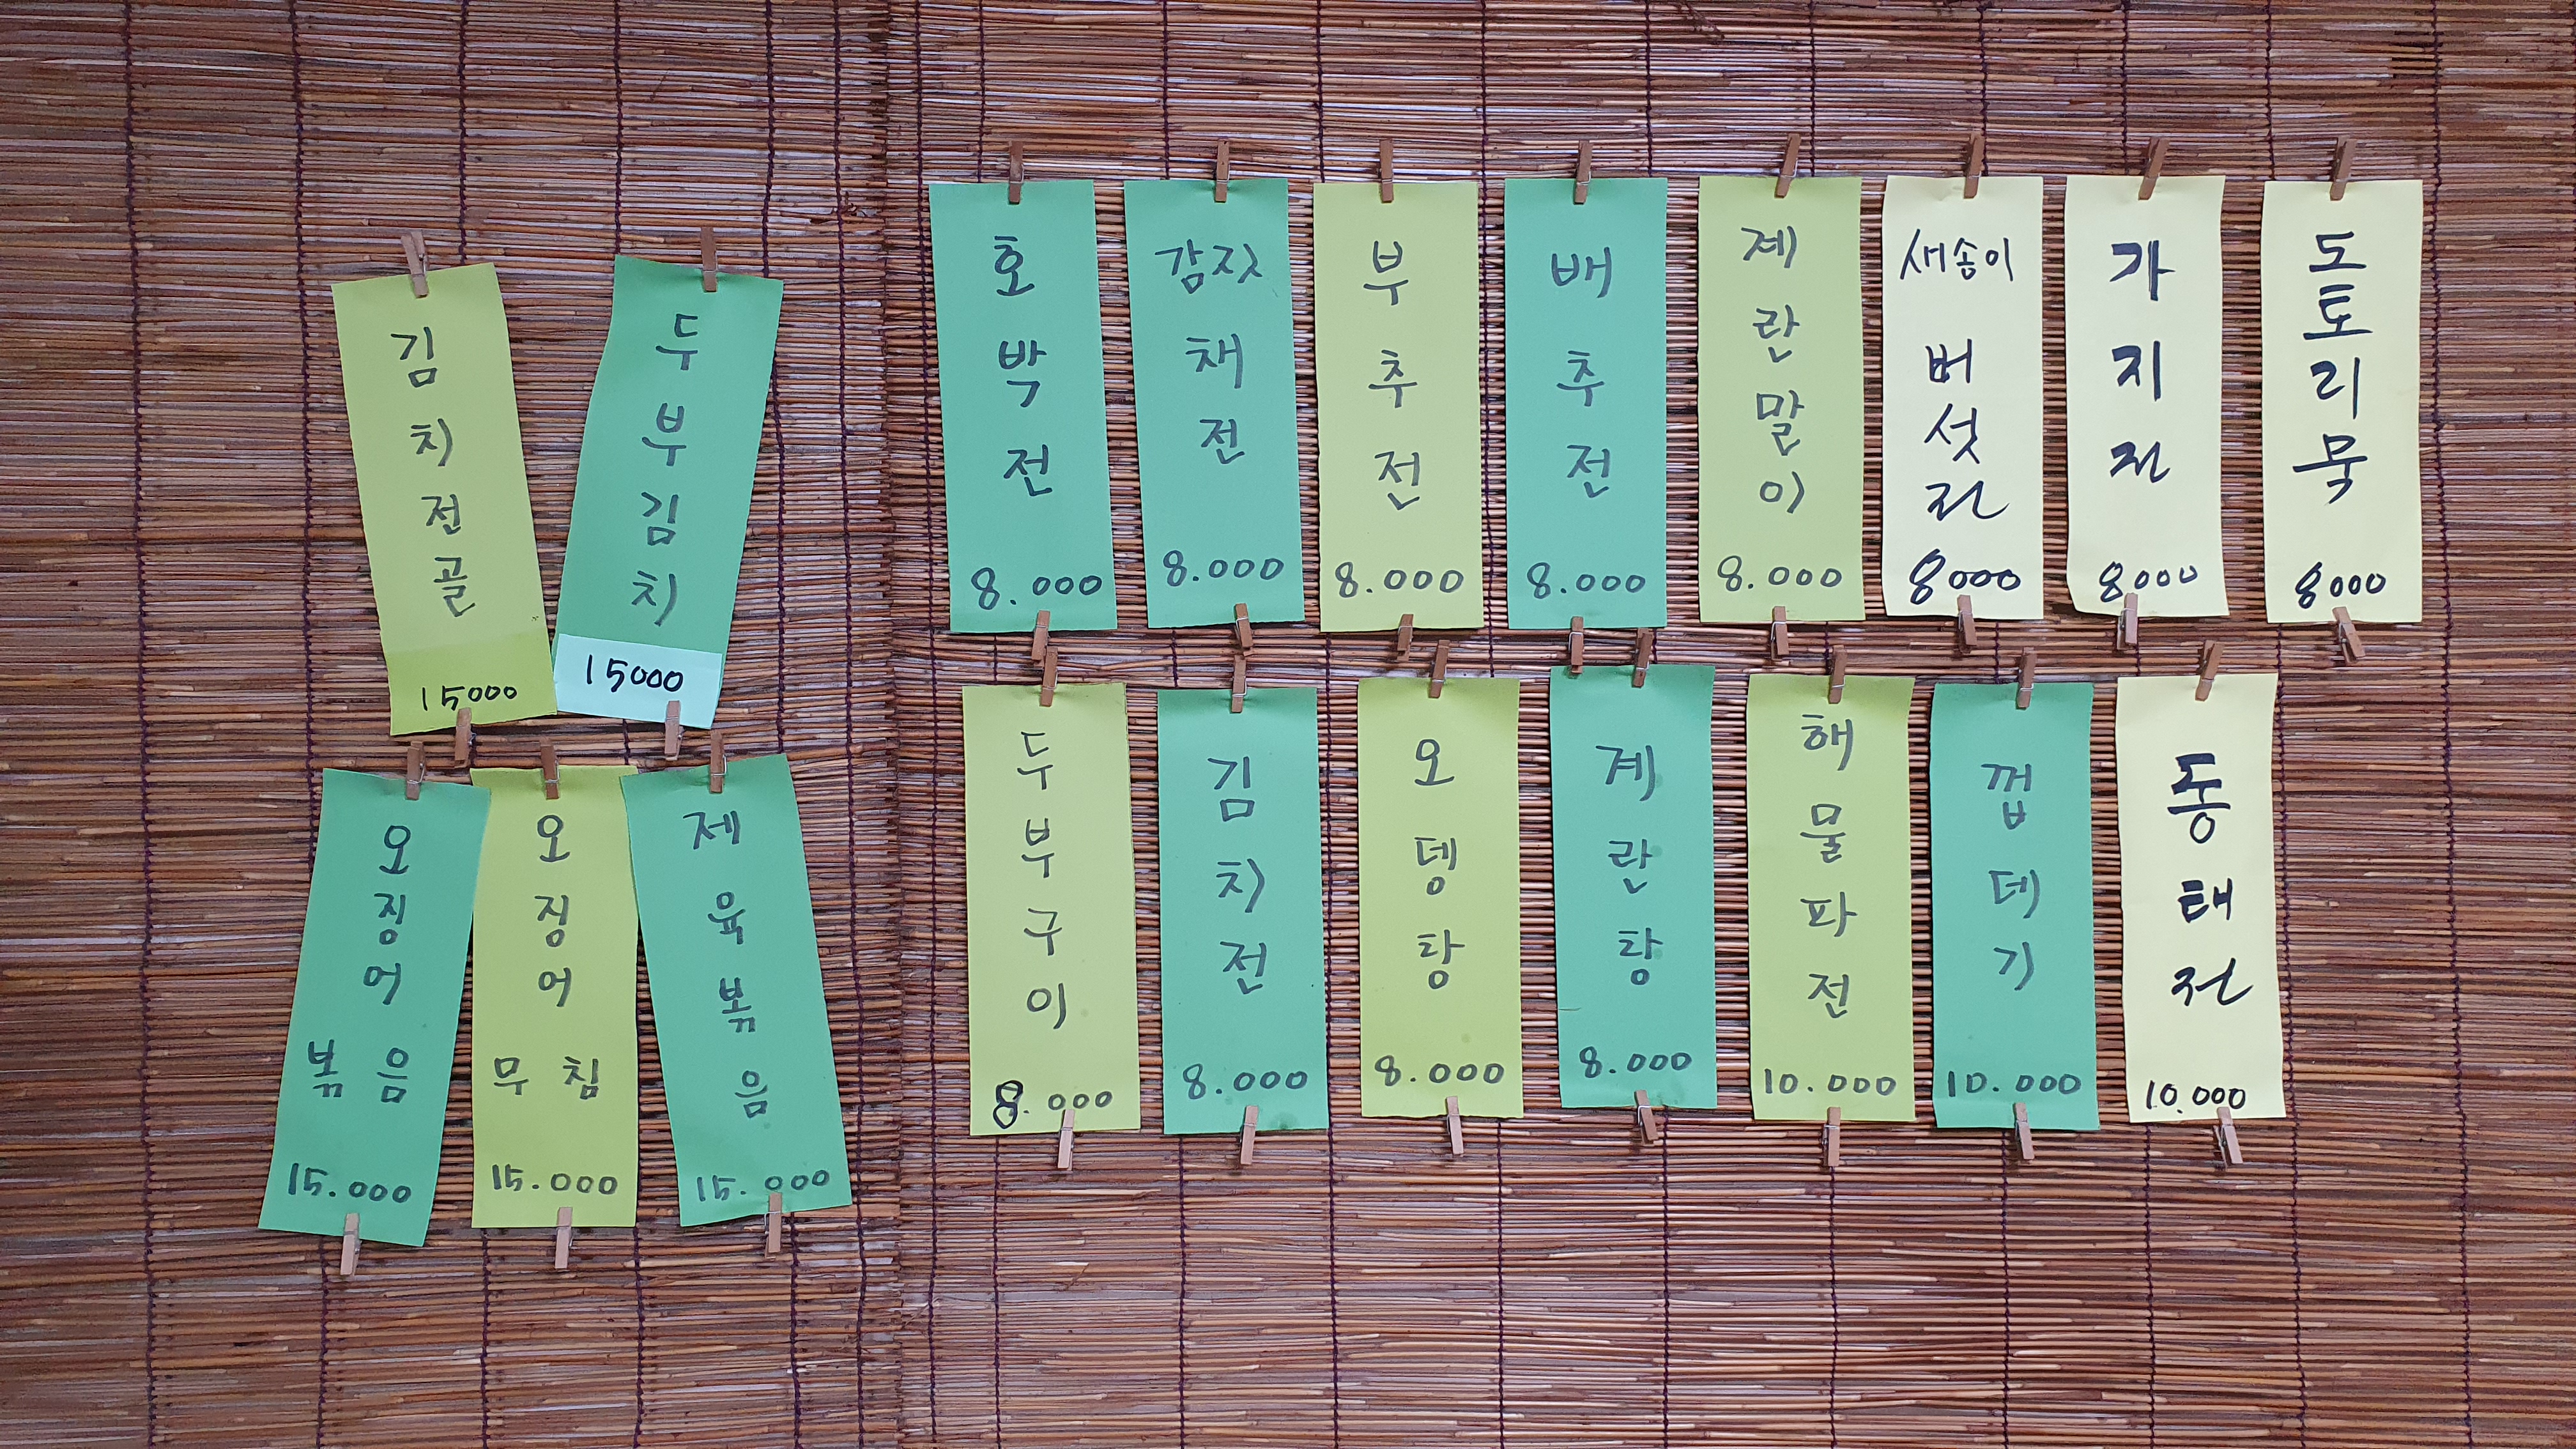 김치전골
15000
두부김치
15000
오징어
볶음
15.000
오징어
무침
15.000
제육볶음
15.000
호박전
8.000
감자채전
8.000
부추전
8.000
배추전
8.000
계란말이
8.000
새송이
버섯전
8000
가지전
8000
도토리묵
8000
두부구이
8.000
김치전
8.000
오뎅탕
8.000
계란탕
8.000
해물파전
10.000
껍데기
10.000
동태전
10.000